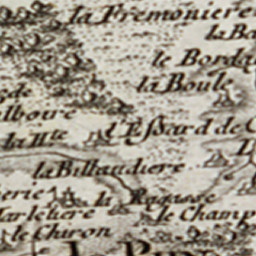 la Fremoniere
la Ba
le Borda
la Boule
rde
lboire
la Hte
l'Essard de C
la Billaudiere
erie
la Ragasse
Marletiere
le Champ
le Chiron